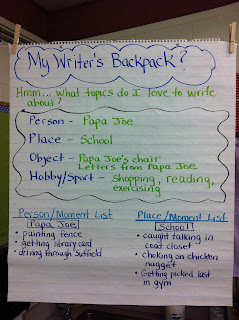 My Writer's Backpack?
Hmm... what topics do I love to write
about?
Person - Papa Joe
Place - School
Object - Papa Joe's chair
Letters from Papa Joe
Hobby/Sport - Shopping, reading,
exercising
Person/Moment List
Papa Joe
• painting fence
• getting library card
• driving through Suffield
Place/Moment List
School!
• caught talking in
coat closet
• choking on chicken
nugget
• Getting picked last
in gym